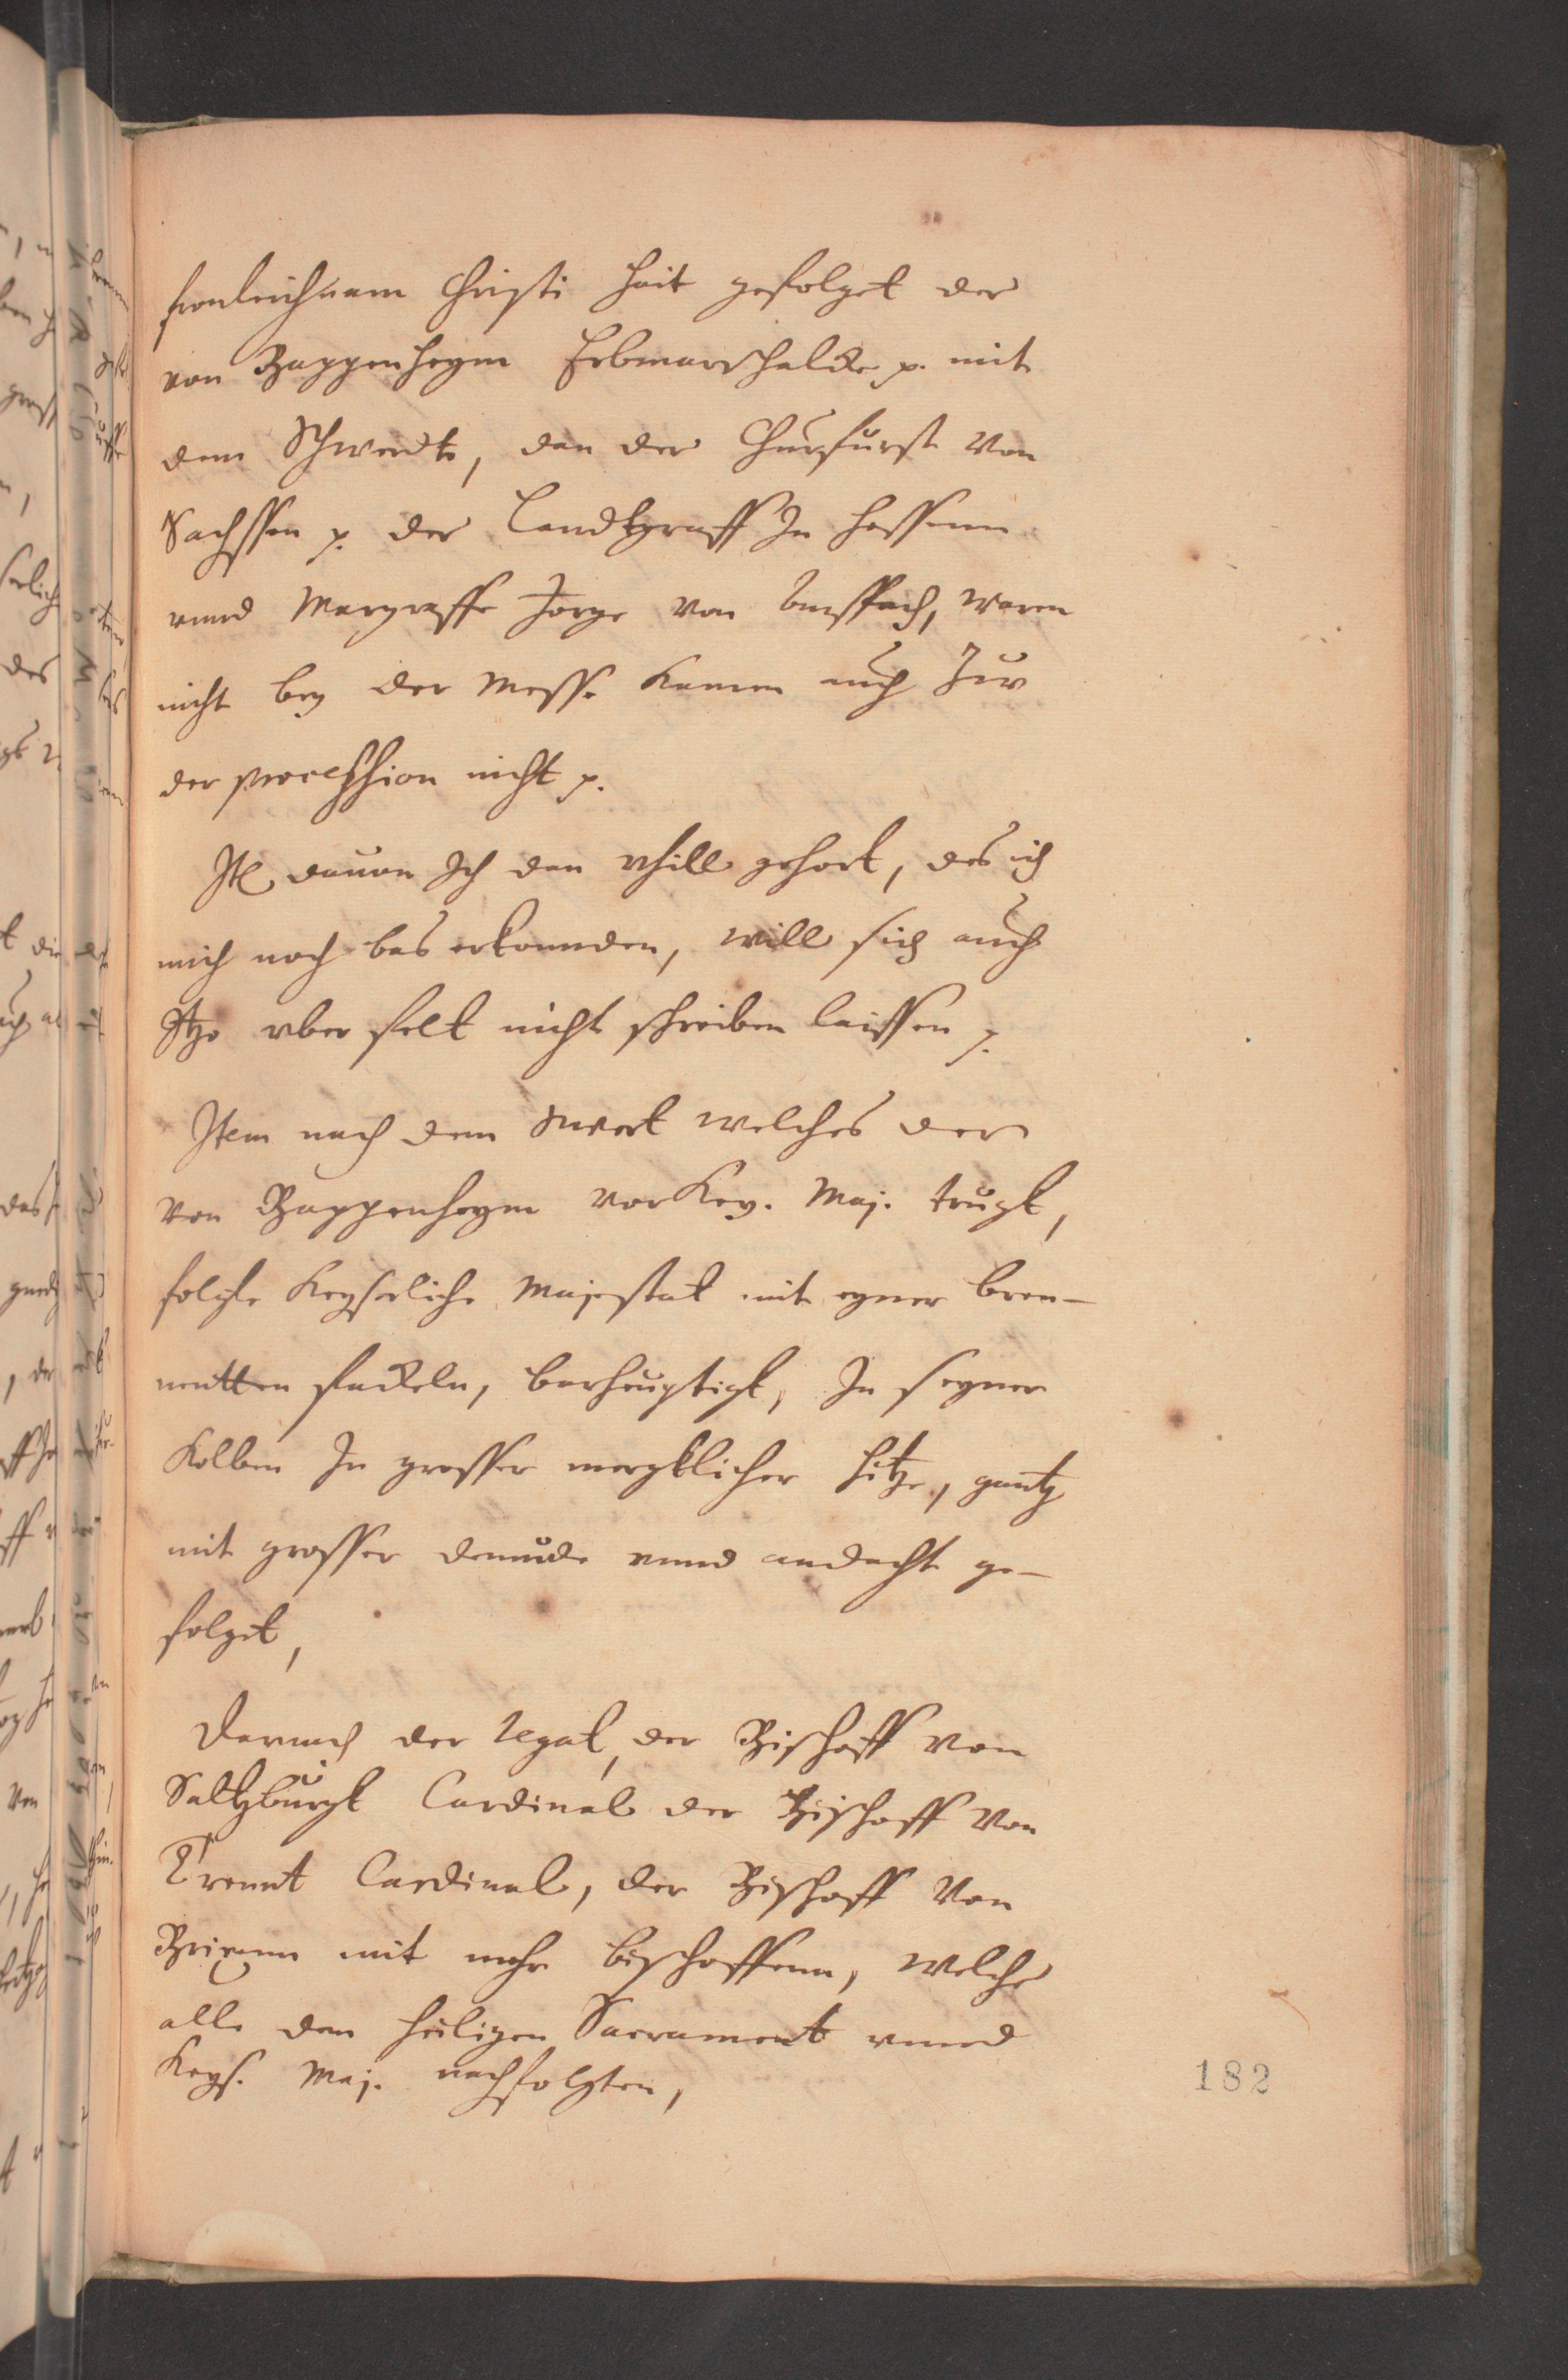 fronleichnam Christi hait gefolget der
von Bappenheym Erbmarschalck p. mit
dem Schwerdt, dan der Churfurst von
Sachssen p. der Landtgraff In hessenn
unnd Margraffe Jorge von Anspach, waren
nicht bey der Messe kamen auch Zw
der processhion nicht p.
Ite dauon Ich dan vhill gehort, des ich
mich noch bas erkonnden, will sich auch
Itzo vber felt nicht schreiben laissen p.
Item nach dem swert welches der
von Bappenheym vor Key. Maj. trugk,
folgte Keyserliche Majestat mit eyner bren-
nentten fackeln, barheuptigk, In seyner
Kolben In grosser mergklicher hitze, gantz
mit grosser demude unnd andacht ge-
folget,
Darnach der Legat, der Bischoff von
Saltzburgk Cardinal der Bischoff von
Trennt Cardinal, der Bischoff von
Brixenn mit mehr bischoffenn, welche
alle dem heiligen Sacrament unnd
Keys. Maj. nachfolgten,
182